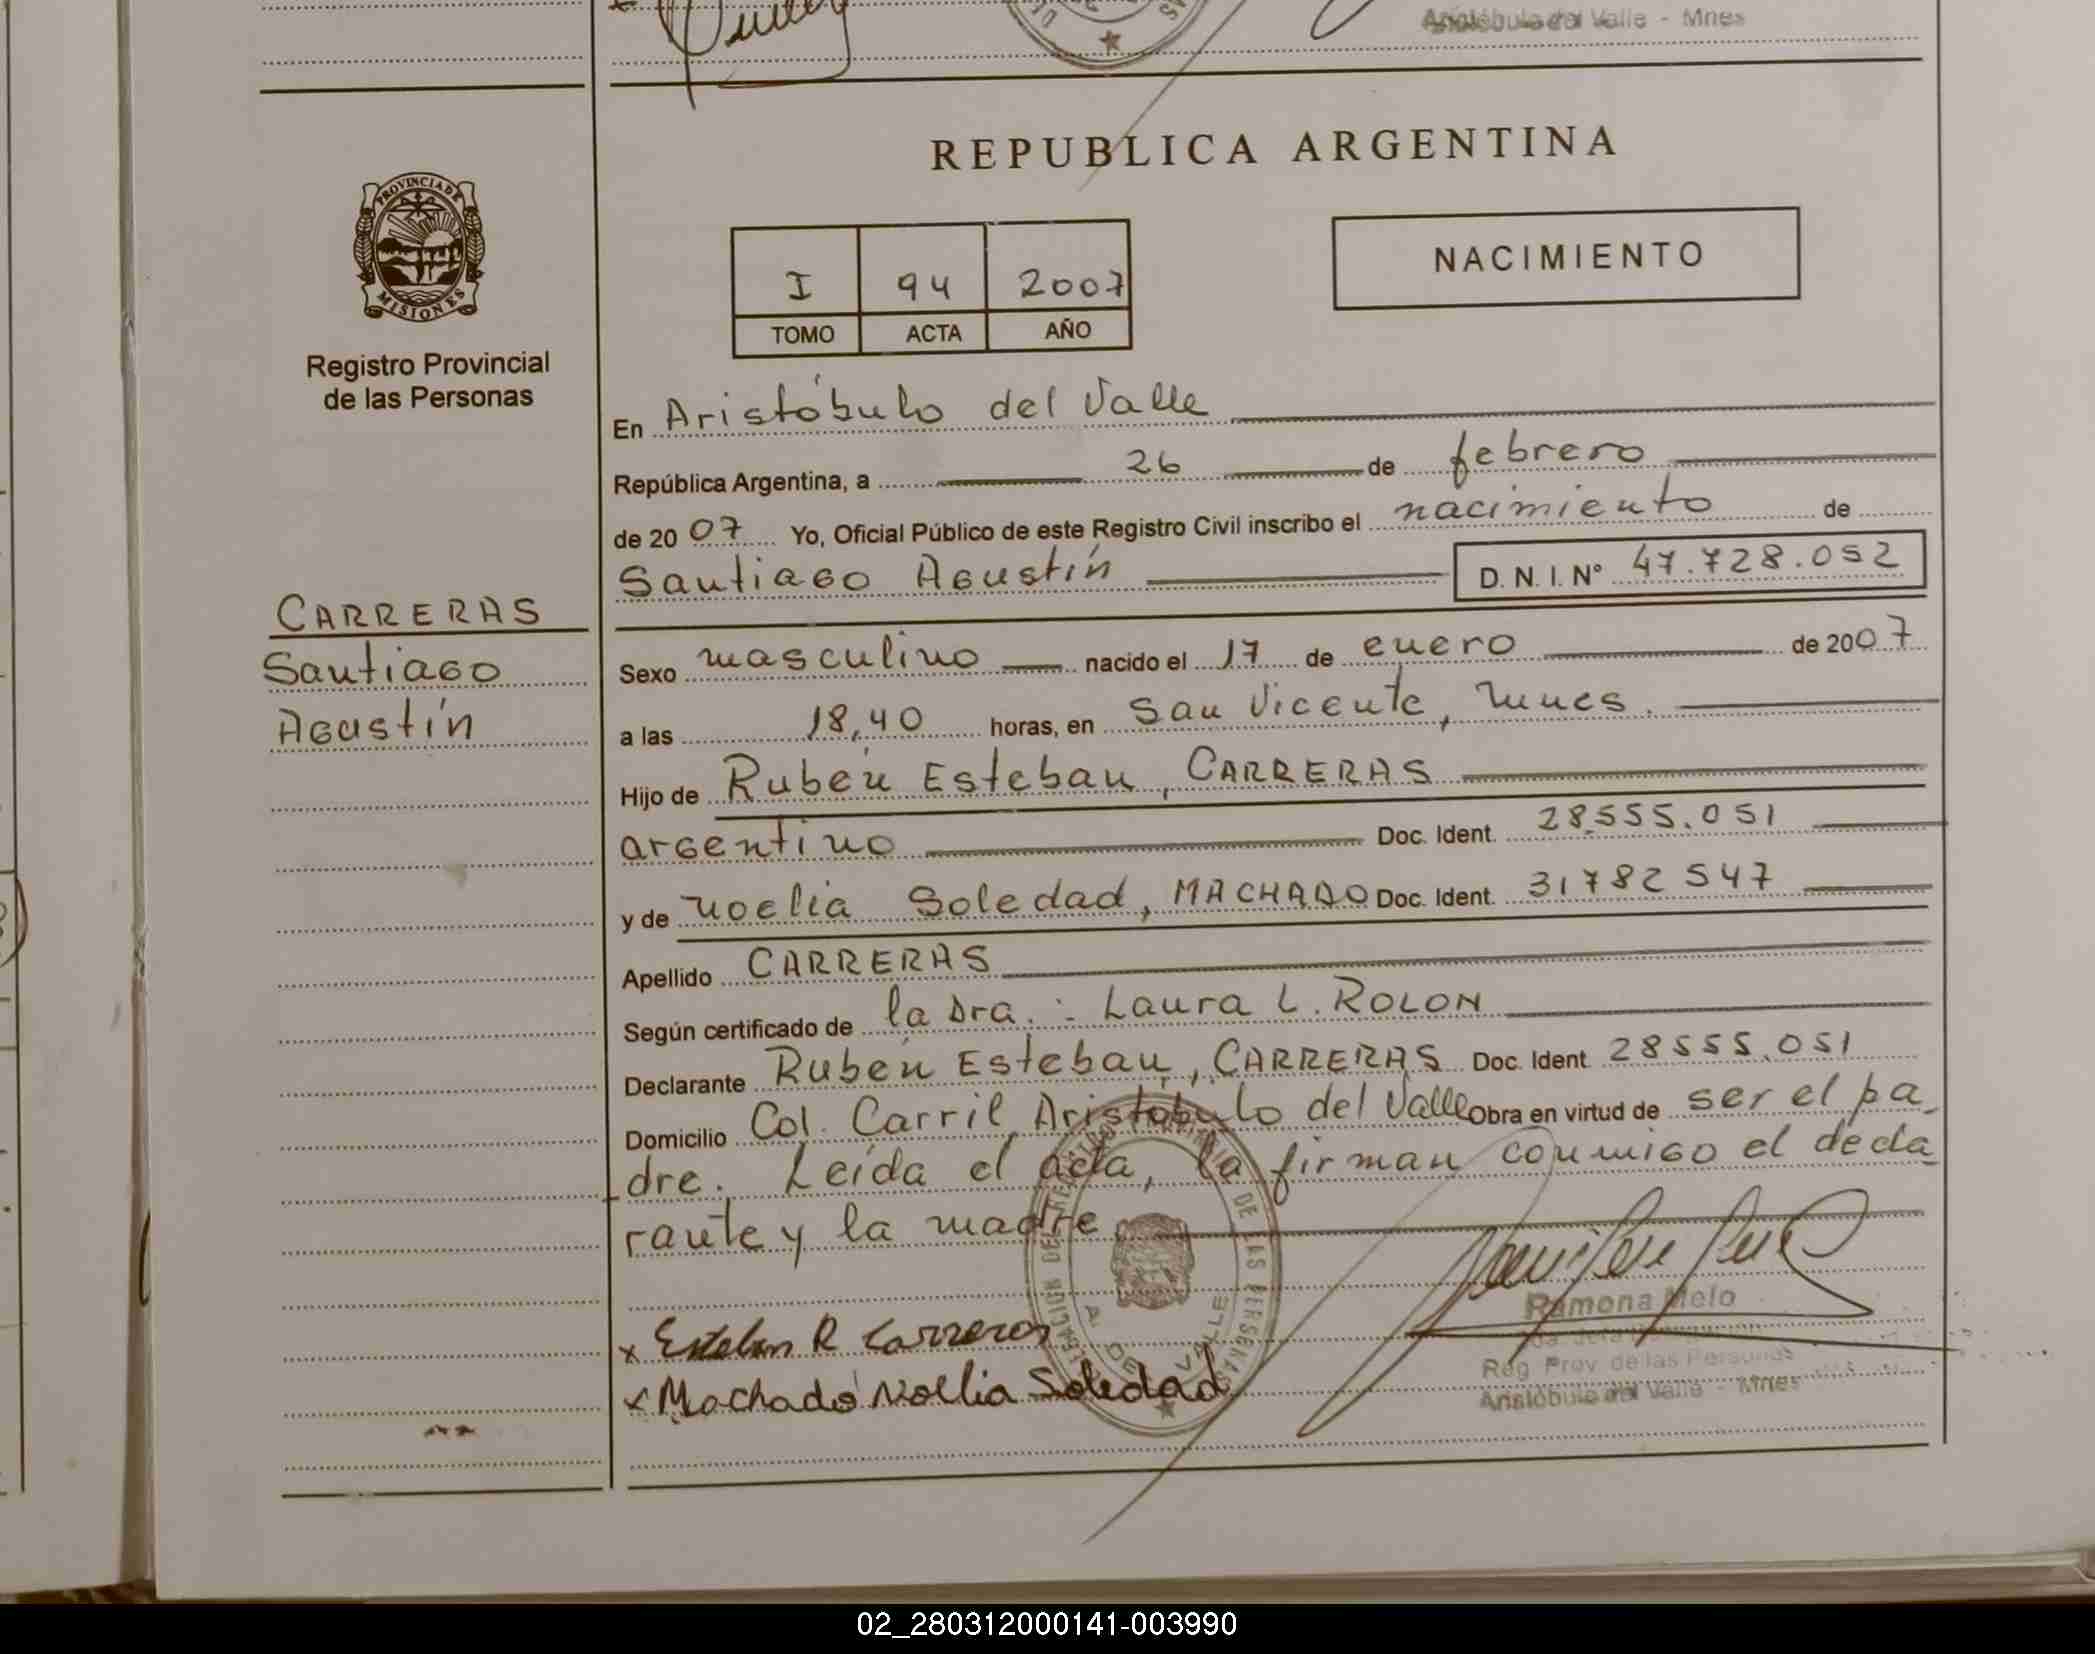 Aristóbulo del Valle - Mnes
REPUBLICA ARGENTINA
PROVINCIA DE
MISIONES
Registro Provincial
de las Personas
I 94 2007
TOMO ACTA AÑO
NACIMIENTO
En Aristóbulo del Valle
República Argentina, a 26 de febrero
de 2007 Yo, Oficial Público de este Registro Civil inscribo el nacimiento de
Santiago Agustín D. N. I. Nº 47.728.052
CARRERAS
Santiago
Agustín
Sexo masculino nacido el 17 de enero de 2007
a las 18,40 horas, en San Vicente, Mnes.
Hijo de Rubén Esteban, CARRERAS
argentino Doc. Ident. 28.555.051
y de Noelia Soledad, MACHADO Doc. Ident. 31782547
Apellido CARRERAS
Según certificado de la Dra.: Laura L. ROLON
Declarante Rubén Esteban, CARRERAS Doc. Ident. 28555.051
Domicilio Col. Carril Aristóbulo del Valle Obra en virtud de ser el pa_
_dre. Leída el acta, la firman conmigo el decla_
rante y la madre
DE LAS PERSONAS
A. DEL VALLE
x Esteban R Carreras
x Machado Noelia Soledad
Ramona Melo
Reg. Prov. de las Personas
Aristóbulo del Valle - Mnes
02_280312000141-003990